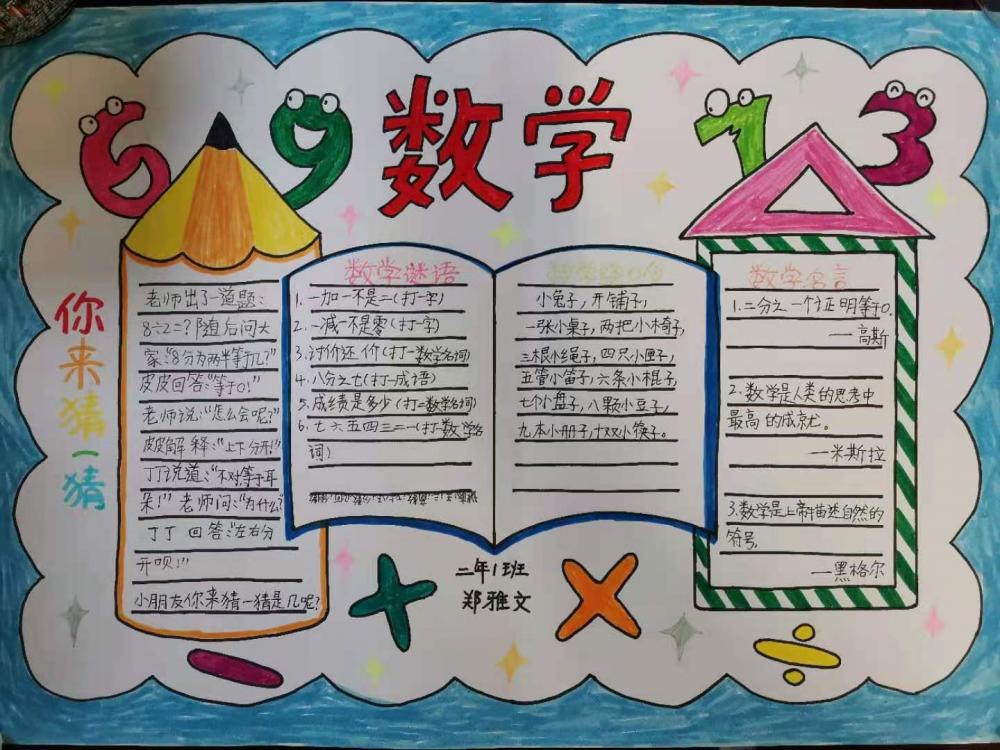 数学
你来猜一猜
老师出了一道题：
8÷2=？随后问大
家："8分为两半等于几？"
皮皮回答："等于0！"
老师说："怎么会呢？"
皮皮解释："上下分开！"
丁丁说道："不对，等于耳
朵！"老师问："为什么？"
丁丁回答："左右分
开呗！"
小朋友你来猜一猜是几呢？
数学谜语
1. 一加一不是二（打一字）
2. 一减一不是零（打一字）
3. 讨价还价（打一数学名词）
4. 八分之七（打一成语）
5. 成绩是多少（打一数学名词）
6. 七六五四三二一（打一数学名
词）
小兔子，开铺子，
一张小桌子，两把小椅子，
三根小绳子，四只小匣子，
五管小笛子，六条小棍子，
七个小盘子，八颗小豆子，
九本小册子，十双小筷子。
数学名言
1.二分之一个证明等于0.
—高斯
2.数学是人类的思考中
最高的成就。
—米斯拉
3.数学是上帝描述自然的
符号.
—黑格尔
二年1班
郑雅文